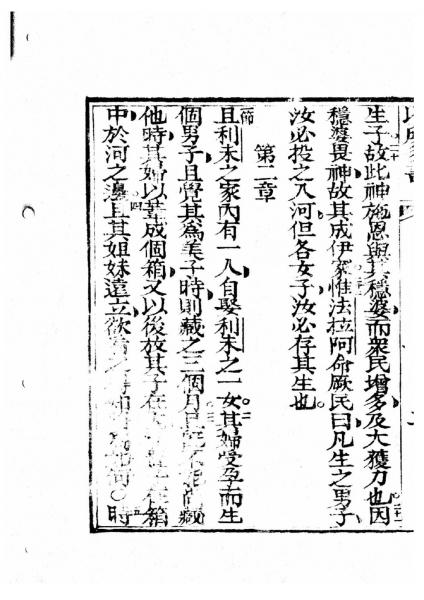 生子故此神施恩與其穩婆而衆民增多及大獲力也因
穩婆畏神故其成伊家惟法拉阿命厥民曰凡生之男子
汝必投之入河但各女子汝必存其生也
第二章
一節
且利未之家內有一人自娶利未之一女其婦受孕而生
個男子且覺其爲美子時則藏之三個月藏
他時其婦以葦成個箱又以後放其子在在箱
中於河之邊且其姐妹遠立欲時